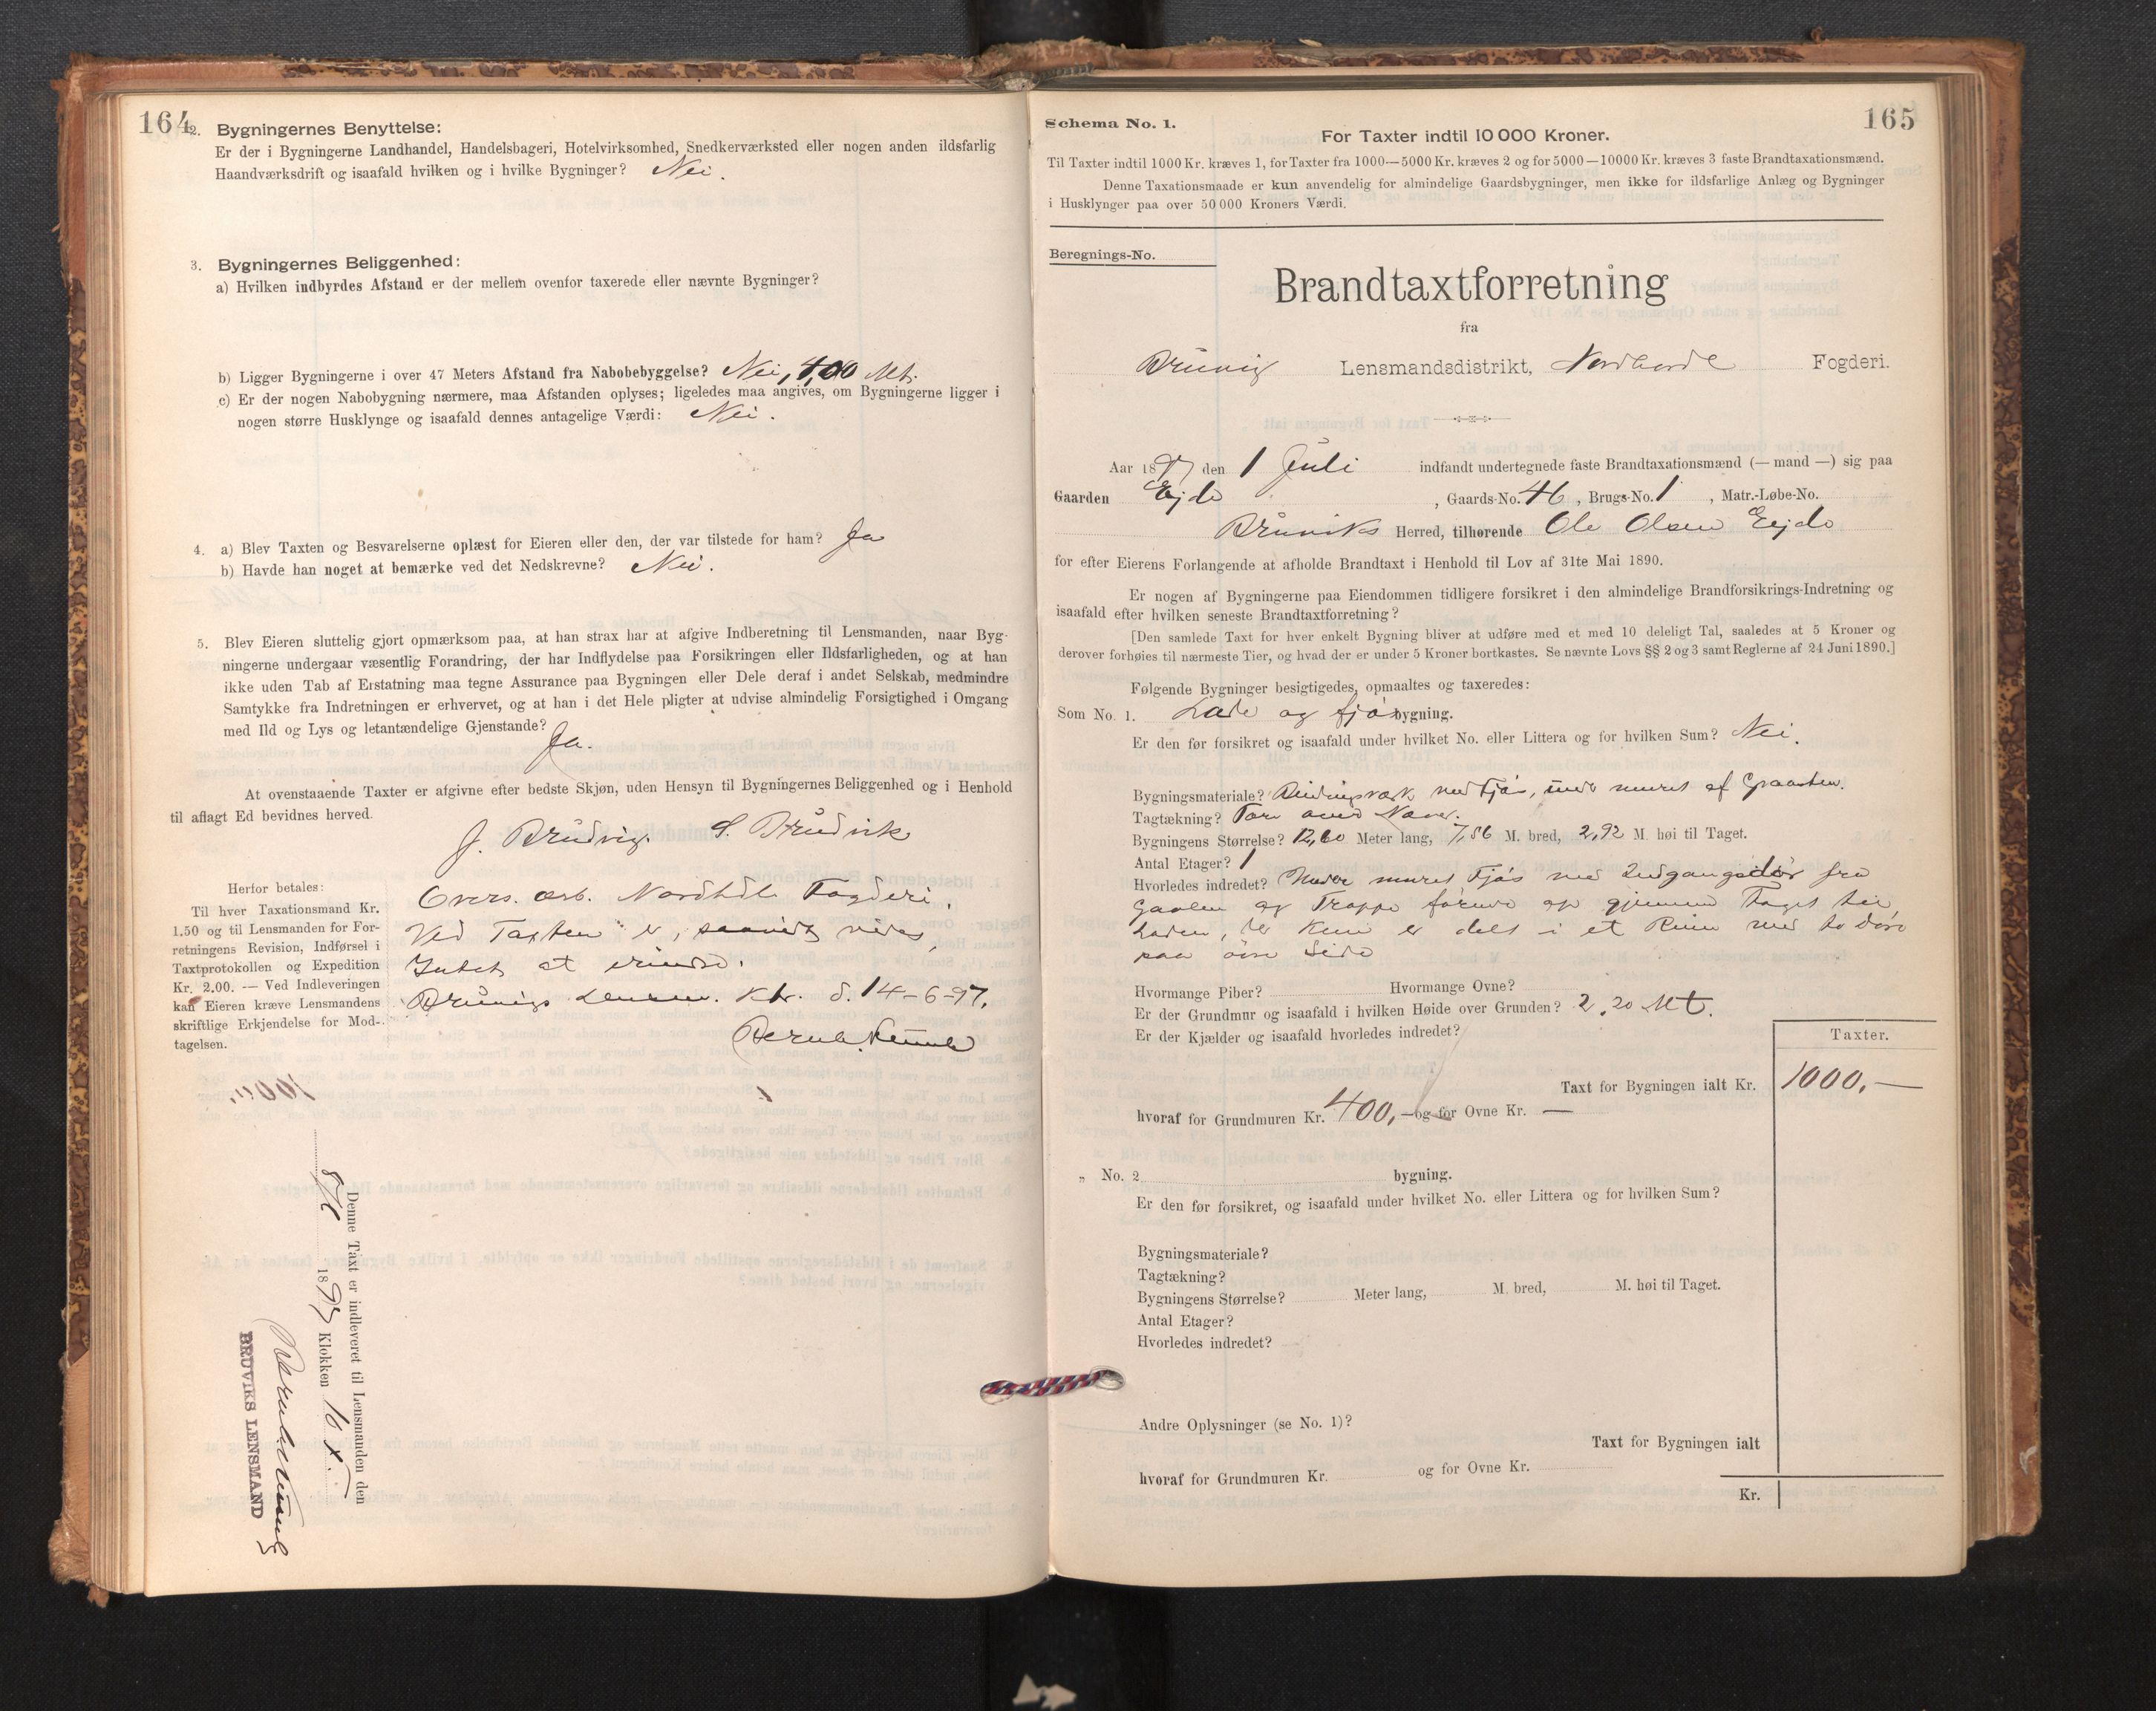 164
2. Bygningernes Benyttelse:
Er der i Bygningerne Landhandel, Handelsbageri, Hotelvirksomhed, Snedkerværksted eller nogen anden ildsfarlig
Haandværksdrift og isaafald hvilken og i hvilke Bygninger? Nei.
3. Bygningernes Beliggenhed:
a) Hvilken indbyrdes Afstand er der mellem ovenfor taxerede eller nævnte Bygninger?
b) Ligger Bygningerne i over 47 Meters Afstand fra Nabobebyggelse? Nei, 4,00 Mt.
c) Er der nogen Nabobygning nærmere, maa Afstanden oplyses; ligeledes maa angives, om Bygningerne ligger i
nogen større Husklynge og isaafald dennes antagelige Værdi: Nei.
4. a) Blev Taxten og Besvarelserne oplæst for Eieren eller den, der var tilstede for ham? Ja
b) Havde han noget at bemærke ved det Nedskrevne? Nei.
5. Blev Eieren sluttelig gjort opmærksom paa, at han strax har at afgive Indberetning til Lensmanden, naar Byg-
ningerne undergaar væsentlig Forandring, der har Indflydelse paa Forsikringen eller Ildsfarligheden, og at han
ikke uden Tab af Erstatning maa tegne Assurance paa Bygningen eller Dele deraf i andet Selskab, medmindre
Samtykke fra Indretningen er erhvervet, og at han i det Hele pligter at udvise almindelig Forsigtighed i Omgang
med Ild og Lys og letantændelige Gjenstande? Ja.
At ovenstaaende Taxter er afgivne efter bedste Skjøn, uden Hensyn til Bygningernes Beliggenhed og i Henhold
til aflagt Ed bevidnes herved.
J. Brüdvig. S. Brüdvik
Herfor betales:
Til hver Taxationsmand Kr.
1.50 og til Lensmanden for For-
retningens Revision, Indførsel i
Taxtprotokollen og Expedition
Kr. 2.00. — Ved Indleveringen
kan Eieren kræve Lensmandens
skriftlige Erkjendelse for Mod-
tagelsen.
Overs. ærb. Nordhdl. Fogderi.
Ved Taxten er, saavidt vides,
Intet at erindre.
Brüvigs Lensm. Ktr. d. 14-6-97.
Denne Taxt er indleveret til Lensmanden den
1897 Klokken 10
BRUVIKS LENSMAND
165
Schema No. 1.
For Taxter indtil 10 000 Kroner.
Til Taxter indtil 1000 Kr. kræves 1, for Taxter fra 1000—5000 Kr. kræves 2 og for 5000—10000 Kr. kræves 3 faste Brandtaxationsmænd.
Denne Taxationsmaade er kun anvendelig for almindelige Gaardsbygninger, men ikke for ildsfarlige Anlæg og Bygninger
i Husklynger paa over 50 000 Kroners Værdi.
Beregnings-No.
Brandtaxtforretning
fra
Brüvig Lensmandsdistrikt, Nordhordl Fogderi.
Aar 1897 den 1 Juli indfandt undertegnede faste Brandtaxationsmænd (— mand —) sig paa
Gaarden Eide, Gaards-No. 46, Brugs-No. 1, Matr.-Løbe-No.
Brüviks Herred, tilhørende Ole Olsen Eide
for efter Eierens Forlangende at afholde Brandtaxt i Henhold til Lov af 31te Mai 1890.
Er nogen af Bygningerne paa Eiendommen tidligere forsikret i den almindelige Brandforsikrings-Indretning og
isaafald efter hvilken seneste Brandtaxtforretning?
[Den samlede Taxt for hver enkelt Bygning bliver at udføre med et med 10 deleligt Tal, saaledes at 5 Kroner og
derover forhøies til nærmeste Tier, og hvad der er under 5 Kroner bortkastes. Se nævnte Lovs §§ 2 og 3 samt Reglerne af 24 Juni 1890.]
Følgende Bygninger besigtigedes, opmaaltes og taxeredes:
Som No. 1. Lade og fjøs bygning.
Er den før forsikret og isaafald under hvilket No. eller Littera og for hvilken Sum? Nei.
Bygningsmateriale? Bindingsværk med Fjøs, under muret af Graasten.
Tagtækning? Torv over Næver.
Bygningens Størrelse? 12,60 Meter lang, 7,86 M. bred, 2,92 M. høi til Taget.
Antal Etager? 1
Hvorledes indredet? Under muret Fjøs med Indgangsdør fra
Gavlen og Trappe op gjennem Taget til
Laden, der kun er delt i et Rum med to døre
paa øvre Side
Hvormange Piber? Hvormange Ovne?
Er der Grundmur og isaafald i hvilken Høide over Grunden? 2.20 Mt.
Er der Kjælder og isaafald hvorledes indredet?
Taxter.
Taxt for Bygningen ialt Kr. 1000.—
hvoraf for Grundmuren Kr. 400,— og for Ovne Kr. —
„ No. 2 bygning.
Er den før forsikret, og isaafald under hvilket No. eller Littera og for hvilken Sum?
Bygningsmateriale?
Tagtækning?
Bygningens Størrelse? Meter lang, M. bred, M. høi til Taget.
Antal Etager?
Hvorledes indredet?
Andre Oplysninger (se No. 1)?
Taxt for Bygningen ialt
hvoraf for Grundmuren Kr. og for Ovne Kr.
Kr.